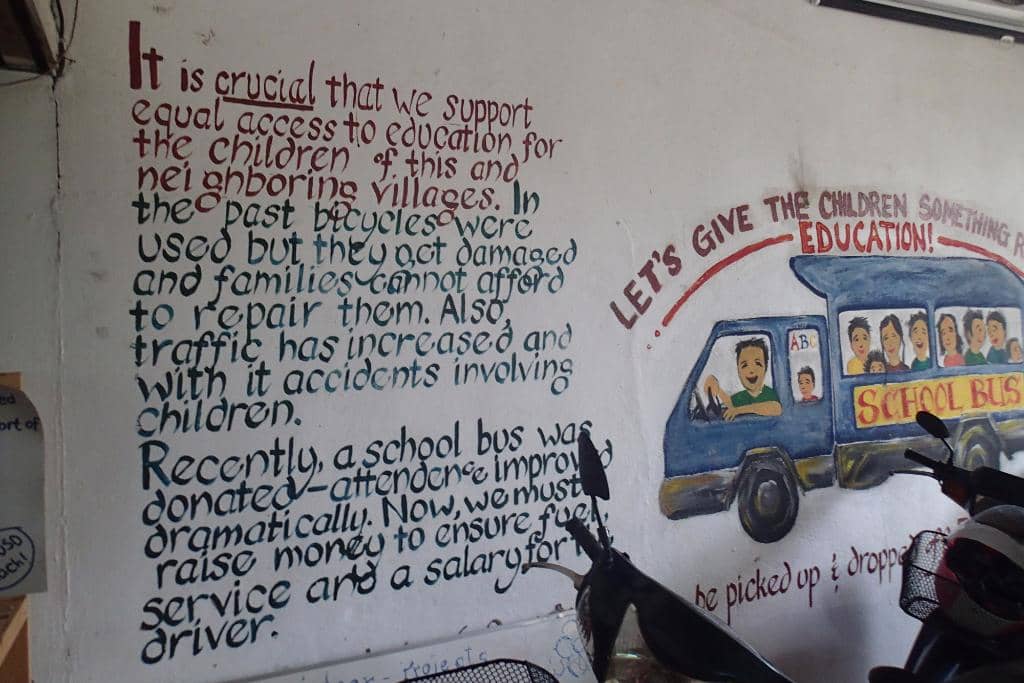 It is crucial that we support
equal access to education for
the children of this and
neighboring villages. In
the past bicycles were
used but they get damaged
and families cannot afford
to repair them. Also,
traffic has increased and
with it accidents involving
children.
Recently, a school bus was
donated - attendence improved
dramatically. Now, we must
raise money to ensure fuel,
service and a salary for
driver.
LET'S GIVE THE CHILDREN SOMETHING
EDUCATION!
ABC
SCHOOL BUS
be picked up & dropped
Projects
ed
ort of
USD